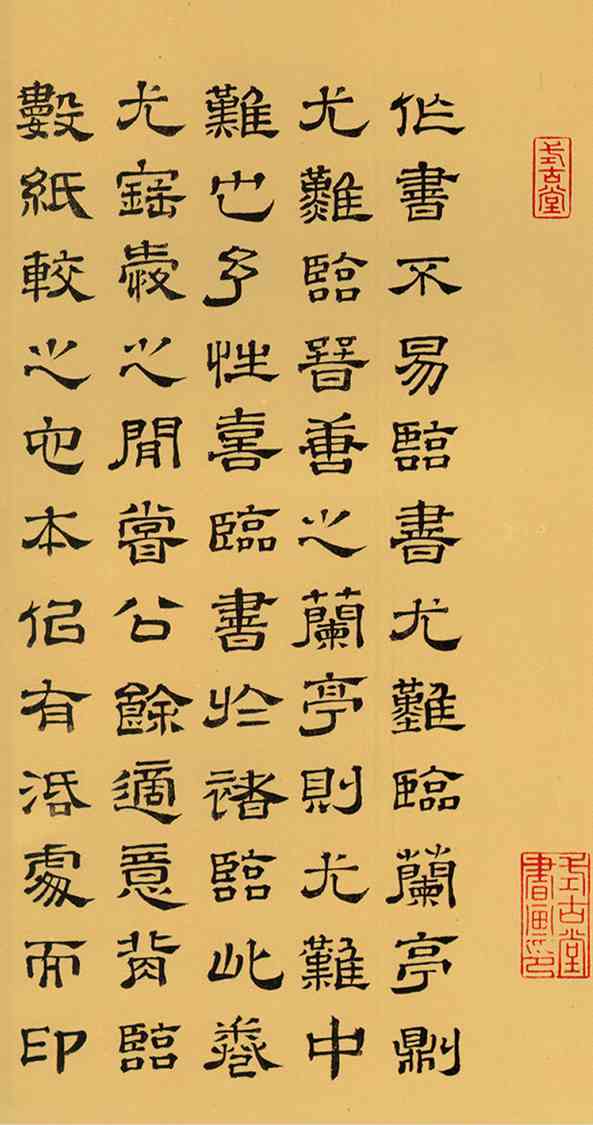 式古堂
式古堂書畫印
作書不易臨書尤難臨蘭亭則
尤難臨晉善之蘭亭則尤難中
難也予性喜臨書於褚臨此卷
尤寶愛之閒嘗公餘適意背臨
數紙較之他本似有活處而印